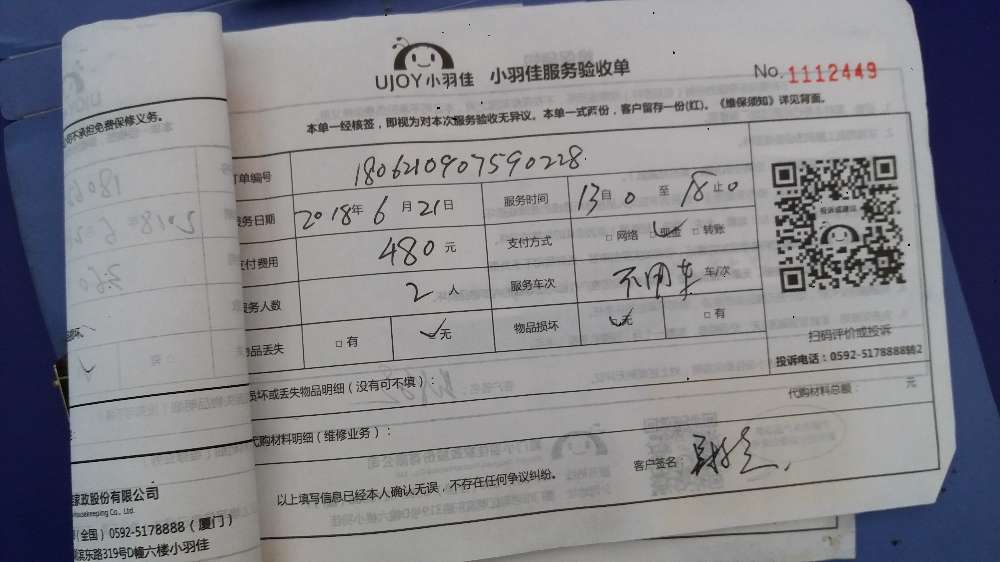 UJOY小羽佳 小羽佳服务验收单 No.1112449
本单一经核签，即视为对本次服务验收无异议。本单一式两份，客户留存一份(红)。《维保须知》详见背面。
不承担免费保修义务。
订单编号 1806210907590228
服务日期 2018年6月21日 服务时间 13自0至18止0
支付费用 480元 支付方式 □网络 □现金 □转账
服务人数 2人 服务车次 不用车 车/次
物品丢失 □有 □无 物品损坏 □无 □有
投诉或建议
扫码评价或投诉
投诉电话：0592-5178888转2
损坏或丢失物品明细（没有可不填）：
代购材料总额： 元
代购材料明细（维修业务）：
客户签名：
以上填写信息已经本人确认无误，不存在任何争议纠纷。
家政股份有限公司
Housekeeping Co., Ltd.
(全国) 0592-5178888（厦门）
滨东路319号D幢六楼小羽佳